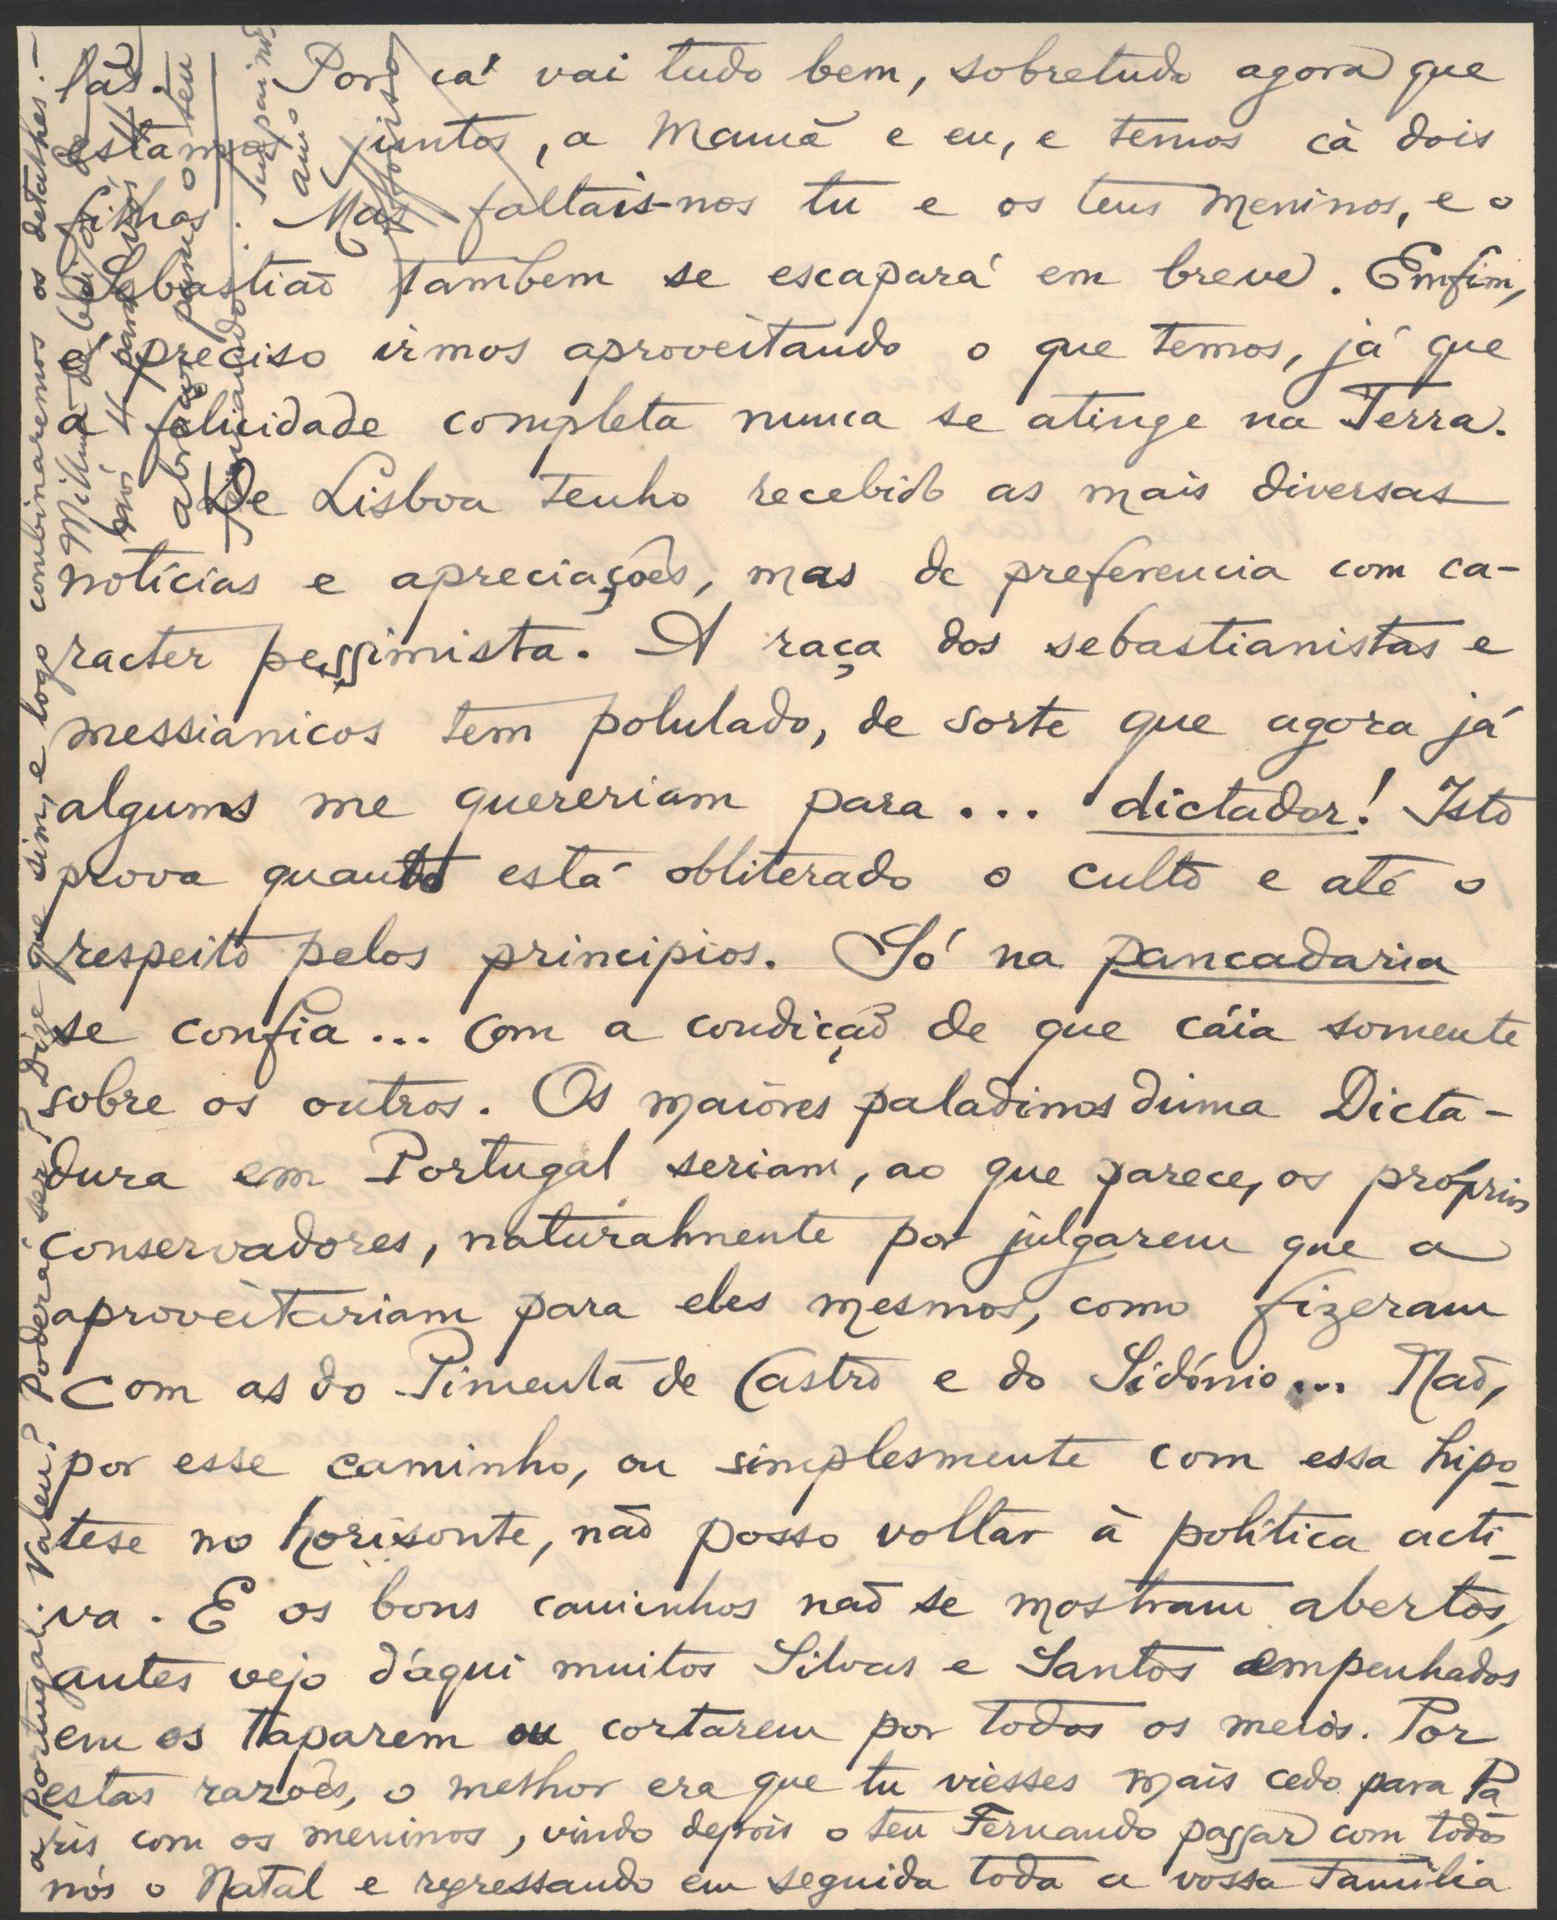 las. Por cá vai tudo bem, sobretudo agora que
estamos juntos, a Mamã e eu, e temos cá dois
filhos. Mas faltais-nos tu e os teus meninos, e o
Sebastião tambem se escapará em breve. Emfim,
é preciso irmos aproveitando o que temos, já que
a felicidade completa nunca se atinge na Terra.
De Lisboa tenho recebido as mais diversas
notícias e apreciações, mas de preferencia com ca-
racter pessimista. A raça dos sebastianistas e
messianicos tem polulado, de sorte que agora já
alguns me quereriam para... dictador! Isto
prova quanto está obliterado o culto e até o
respeito pelos principios. Só na pancadaria
se confia... com a condição de que cáia somente
sobre os outros. Os maiores paladinos duma Dicta-
dura em Portugal seriam, ao que parece, os proprios
conservadores, naturalmente por julgarem que a
aproveitariam para eles mesmos, como fizeram
com as do Pimenta de Castro e do Sidónio... Não,
por esse caminho, ou simplesmente com essa hipo-
tese no horisonte, não posso voltar à política acti-
va. E os bons caminhos não se mostram abertos,
antes vejo d'aqui muitos Silvas e Santos empenhados
em os taparem ou cortarem por todos os meios. Por
estas razões, o melhor era que tu viesses mais cedo para Pa
ris com os meninos, vindo depois o teu Fernando passar com todos
nós o Natal e regressando em seguida toda a vossa Familia
a Portugal. Valeu? Poderá ser? Dize que sim, e logo combinaremos os detalhes.—
Mil beijos de
para vós 4
abraços para o teu
Fernando. Teu pai mto
amo
Afonso